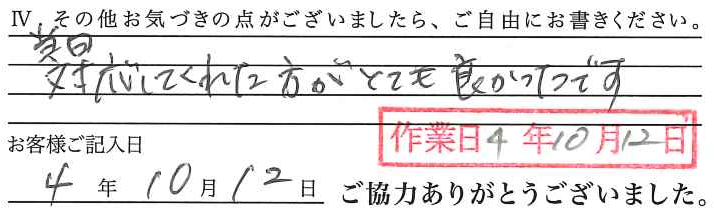 Ⅳ その他お気づきの点がございましたら、ご自由にお書きください。
当日
対応してくれた方がとても良かったです
作業日4年10月12日
お客様ご記入日
4年10月12日 ご協力ありがとうございました。